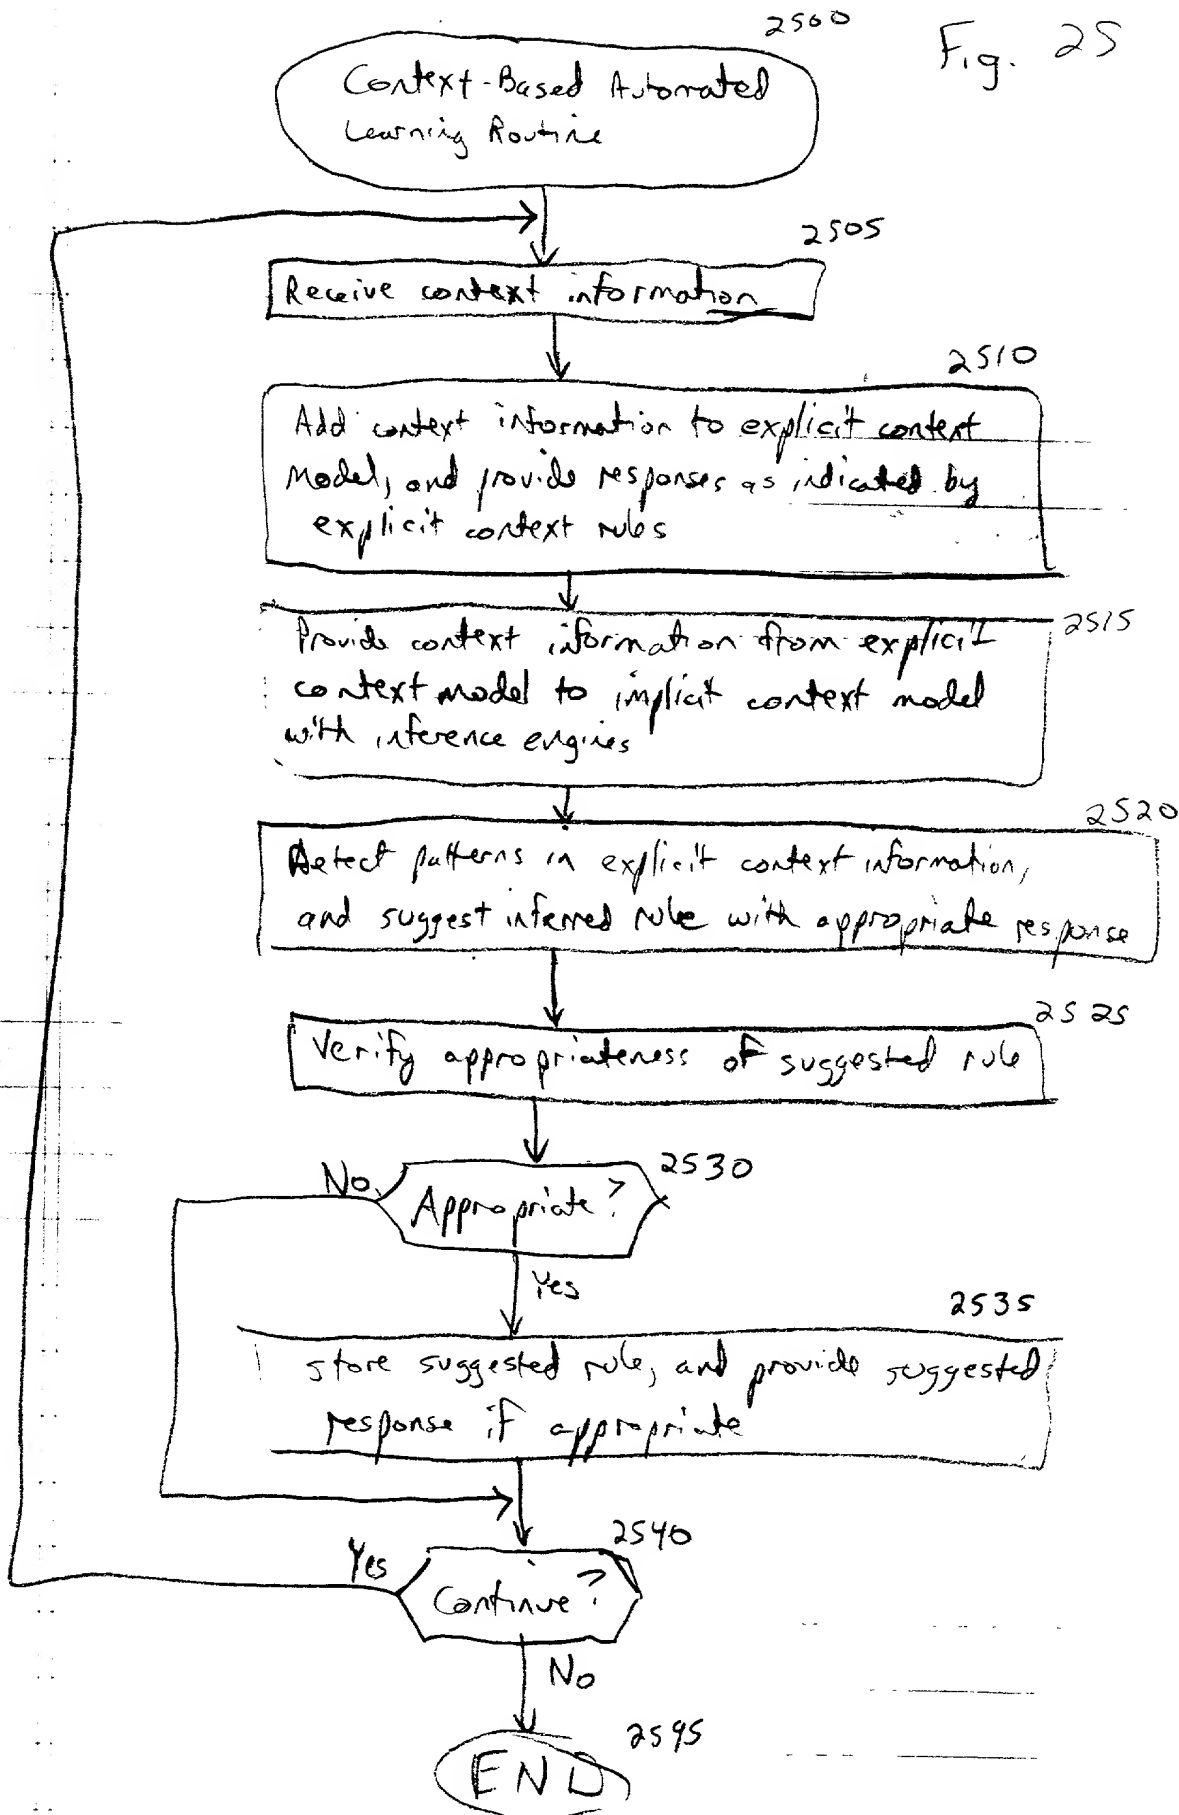 2500
Fig. 25
Context-Based Automated
Learning Routine
2505
Receive context information
2510
Add context information to explicit context
model, and provide responses as indicated by
explicit context rules
2515
Provide context information from explicit
context model to implicit context model
with inference engines
2520
Detect patterns in explicit context information,
and suggest inferred rule with appropriate response
2525
Verify appropriateness of suggested rule
2530
No
Appropriate?
Yes
2535
store suggested rule, and provide suggested
response if appropriate
2540
Yes
Continue?
No
2595
END